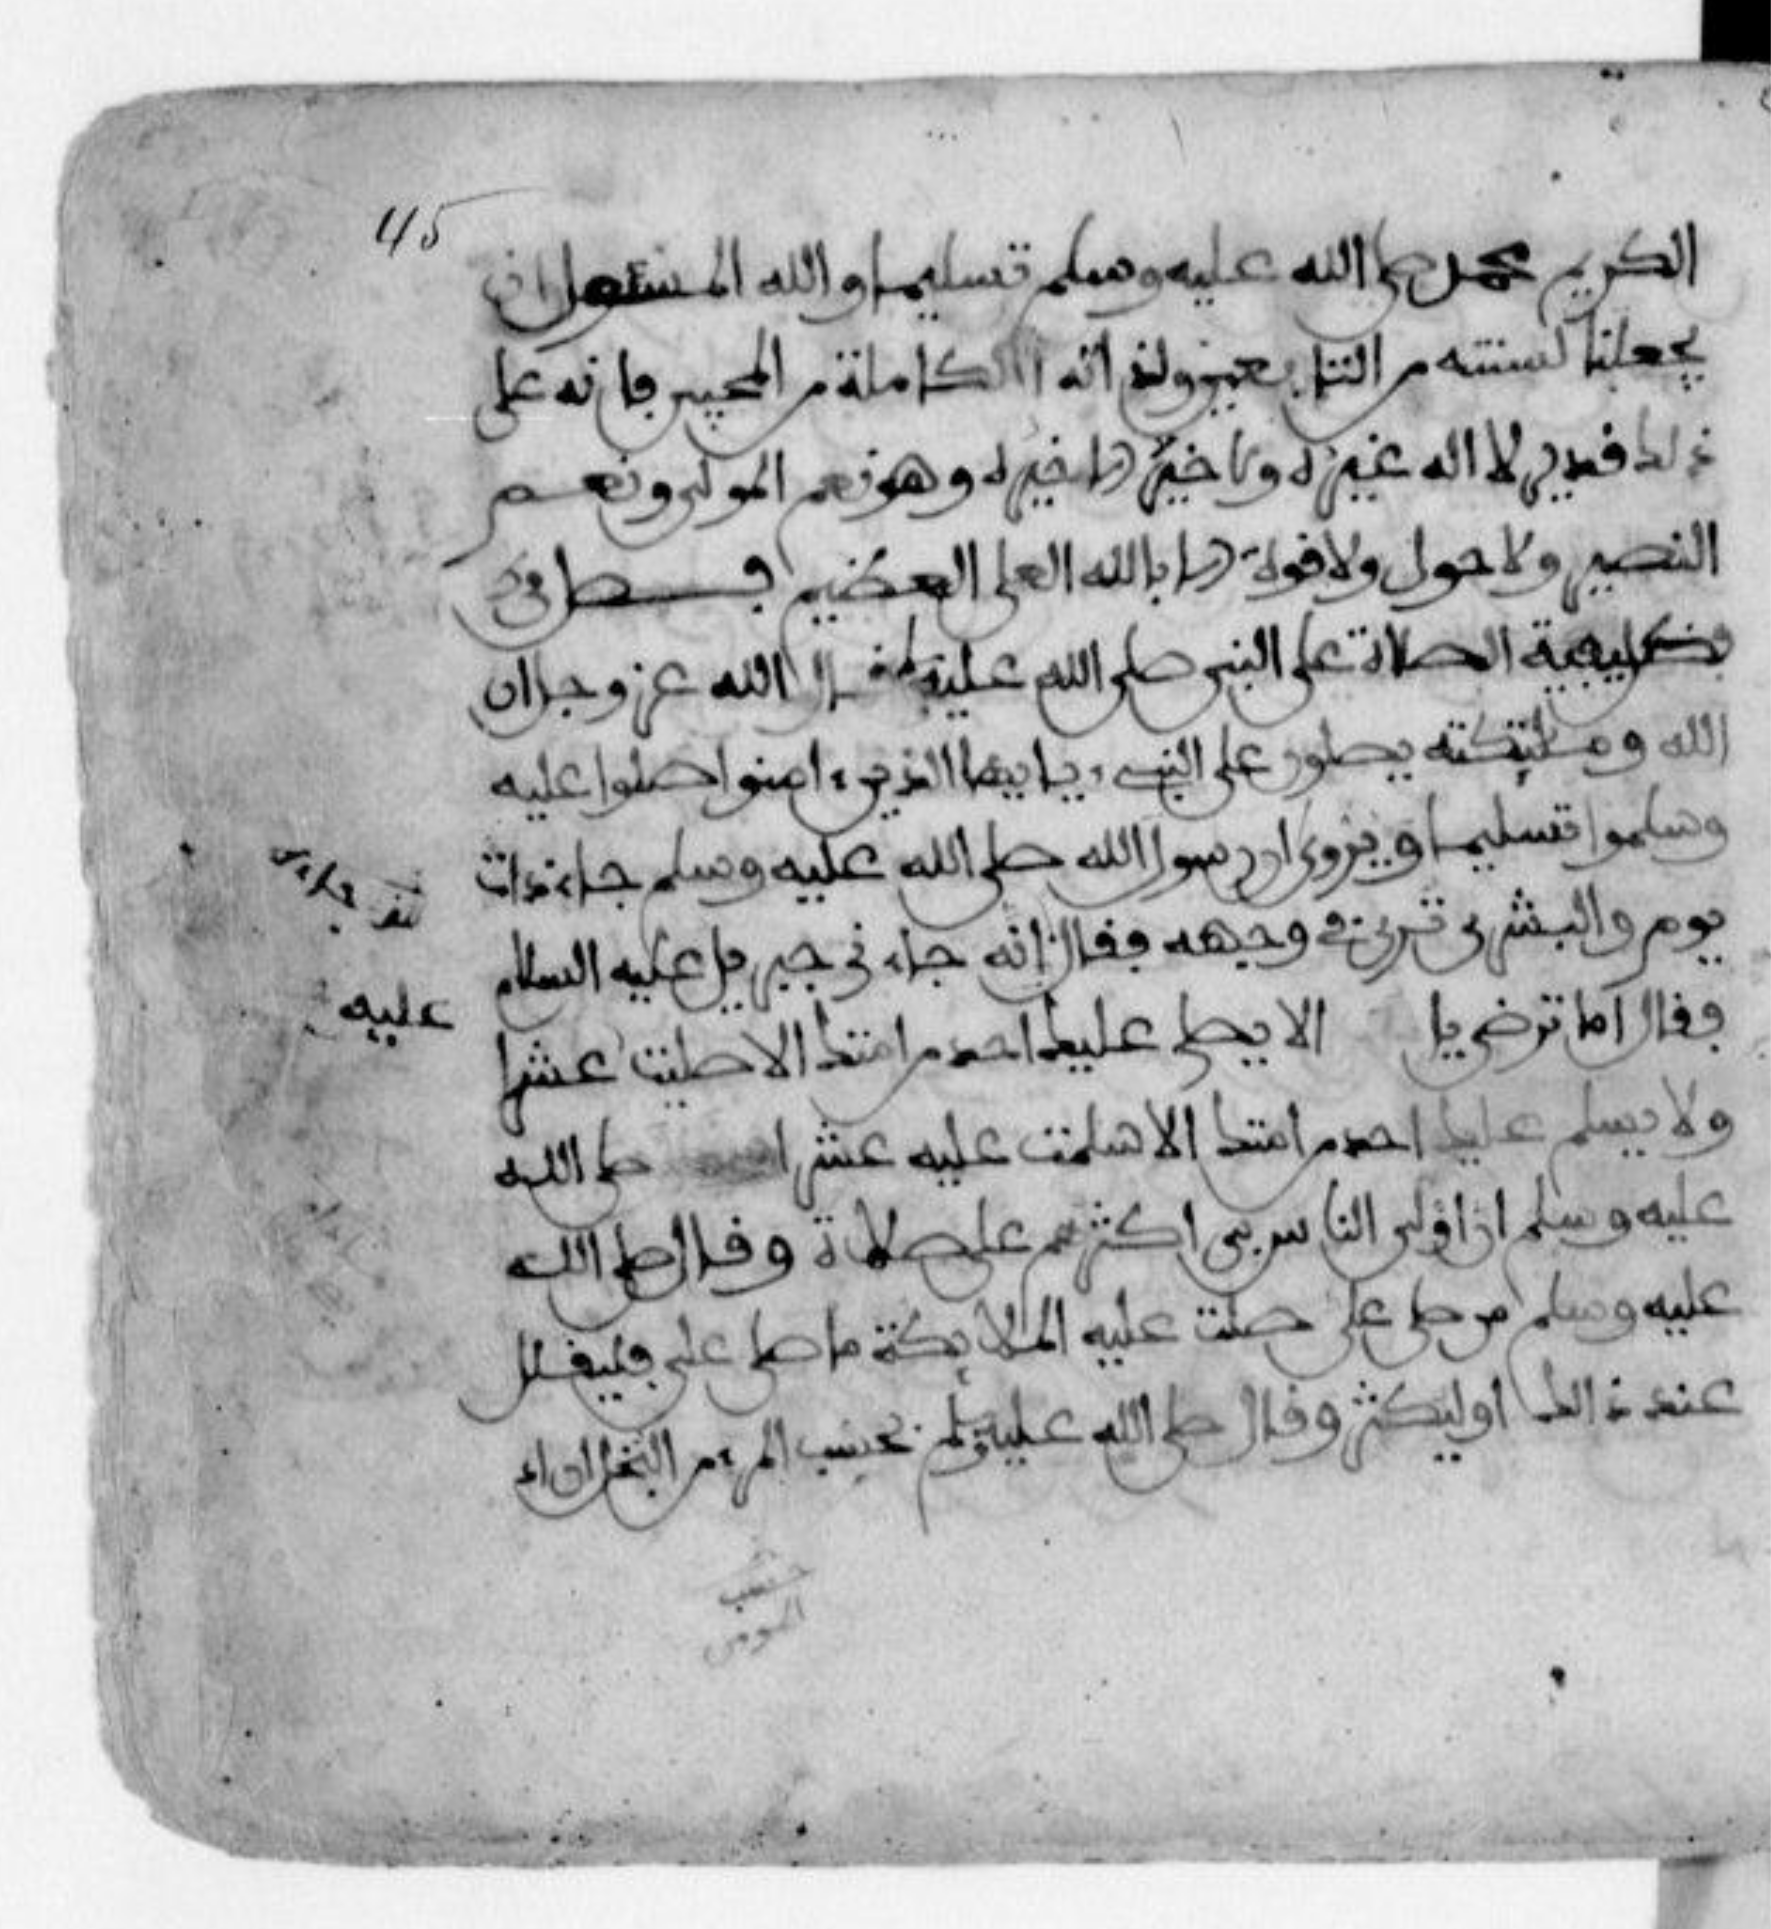 45
الكريم محمد صلى الله عليه وسلم تسليما والله المسئول ان
يجعلنا لسنته من التابعين ولذاته الكاملة من المحبين فانه على
ذلك فدير لا اله غيره ولا خير الا خيره وهو نعم المولى ونعم
النصير ولا حول ولا قوة الا بالله العلي العظيم فصل في
فضيلة الصلاة على النبي صلى الله عليه وسلم قال الله عز وجل ان
الله وملئكته يصلون على النبي يايها الذين ءامنوا صلوا عليه
وسلموا تسليما ويروى ان رسول الله صلى الله عليه وسلم جاء ذات
يوم والبشرى ترى في وجهه فقال انه جاءني جبريل عليه السلام
فقال اما ترضى يا الا يصلي عليك احد من امتك الا صليت عشرا
عليه
ولا يسلم عليك احد من امتك الا سلمت عليه عشرا صلى الله
عليه وسلم ان اولى الناس بي اكثرهم علي صلاة وقال صلى الله
عليه وسلم من صلى علي صلت عليه الملائكة ما صلى علي فليقلل
عند ذالك او ليكثر وقال صلى الله عليه وسلم بحسب المرء من البخل ان اذ
حسب
المومن